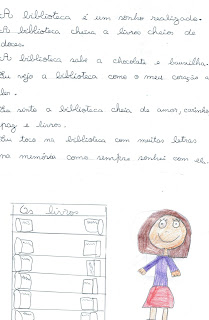 A biblioteca é um sonho realizado.
A biblioteca cheira a livros cheios de
doces.
A biblioteca sabe a chocolate e baunilha.
Eu vejo a biblioteca como o meu coração a
ler.
Eu sinto a biblioteca cheia de amor, carinho
paz e livros.
Eu toco na biblioteca com muitas letras
na memória como sempre sonhei com el
Os livros